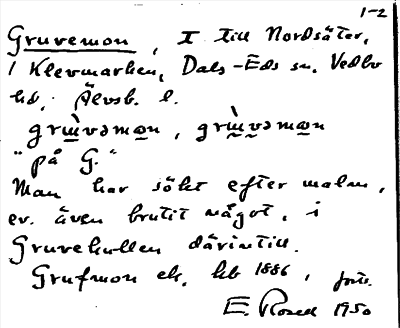 1-2
Gruvemon, I till Nordsäter,
i Klevmarken, Dals-Eds sn. Vedbo
hd, Älvsb. l.
grɯ̀vəmo̲n, grɯ̀və̬mo̲n
"på G."
Man har sökt efter malm,
ev. även brutit något, i
Gruvekullen därintill.
Grufmon ek. kb 1886, forts.
E. Rosell 1950